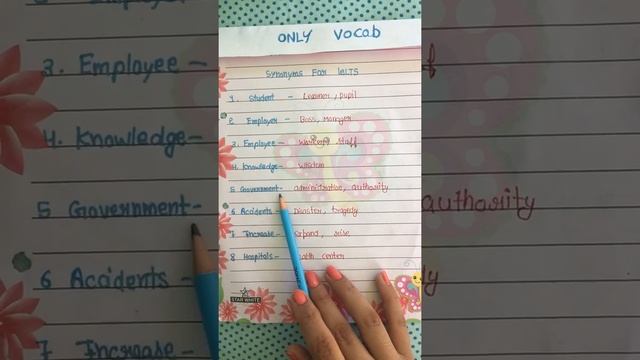 ONLY Vocab
Synonyms For IELTS
1. Student - Learner, pupil
2. Employer - Boss, Manager
3. Employee - staff
4. Knowledge - wisdom
5 Government - administration, authority
6 Accidents - Disaster, tragedy
7 Increase - Expand, rise
8 Hospitals - center
STAR WHITE
3. Employee -
4. Knowledge -
5 Government -
6 Accidents -
7 Increase -
authority